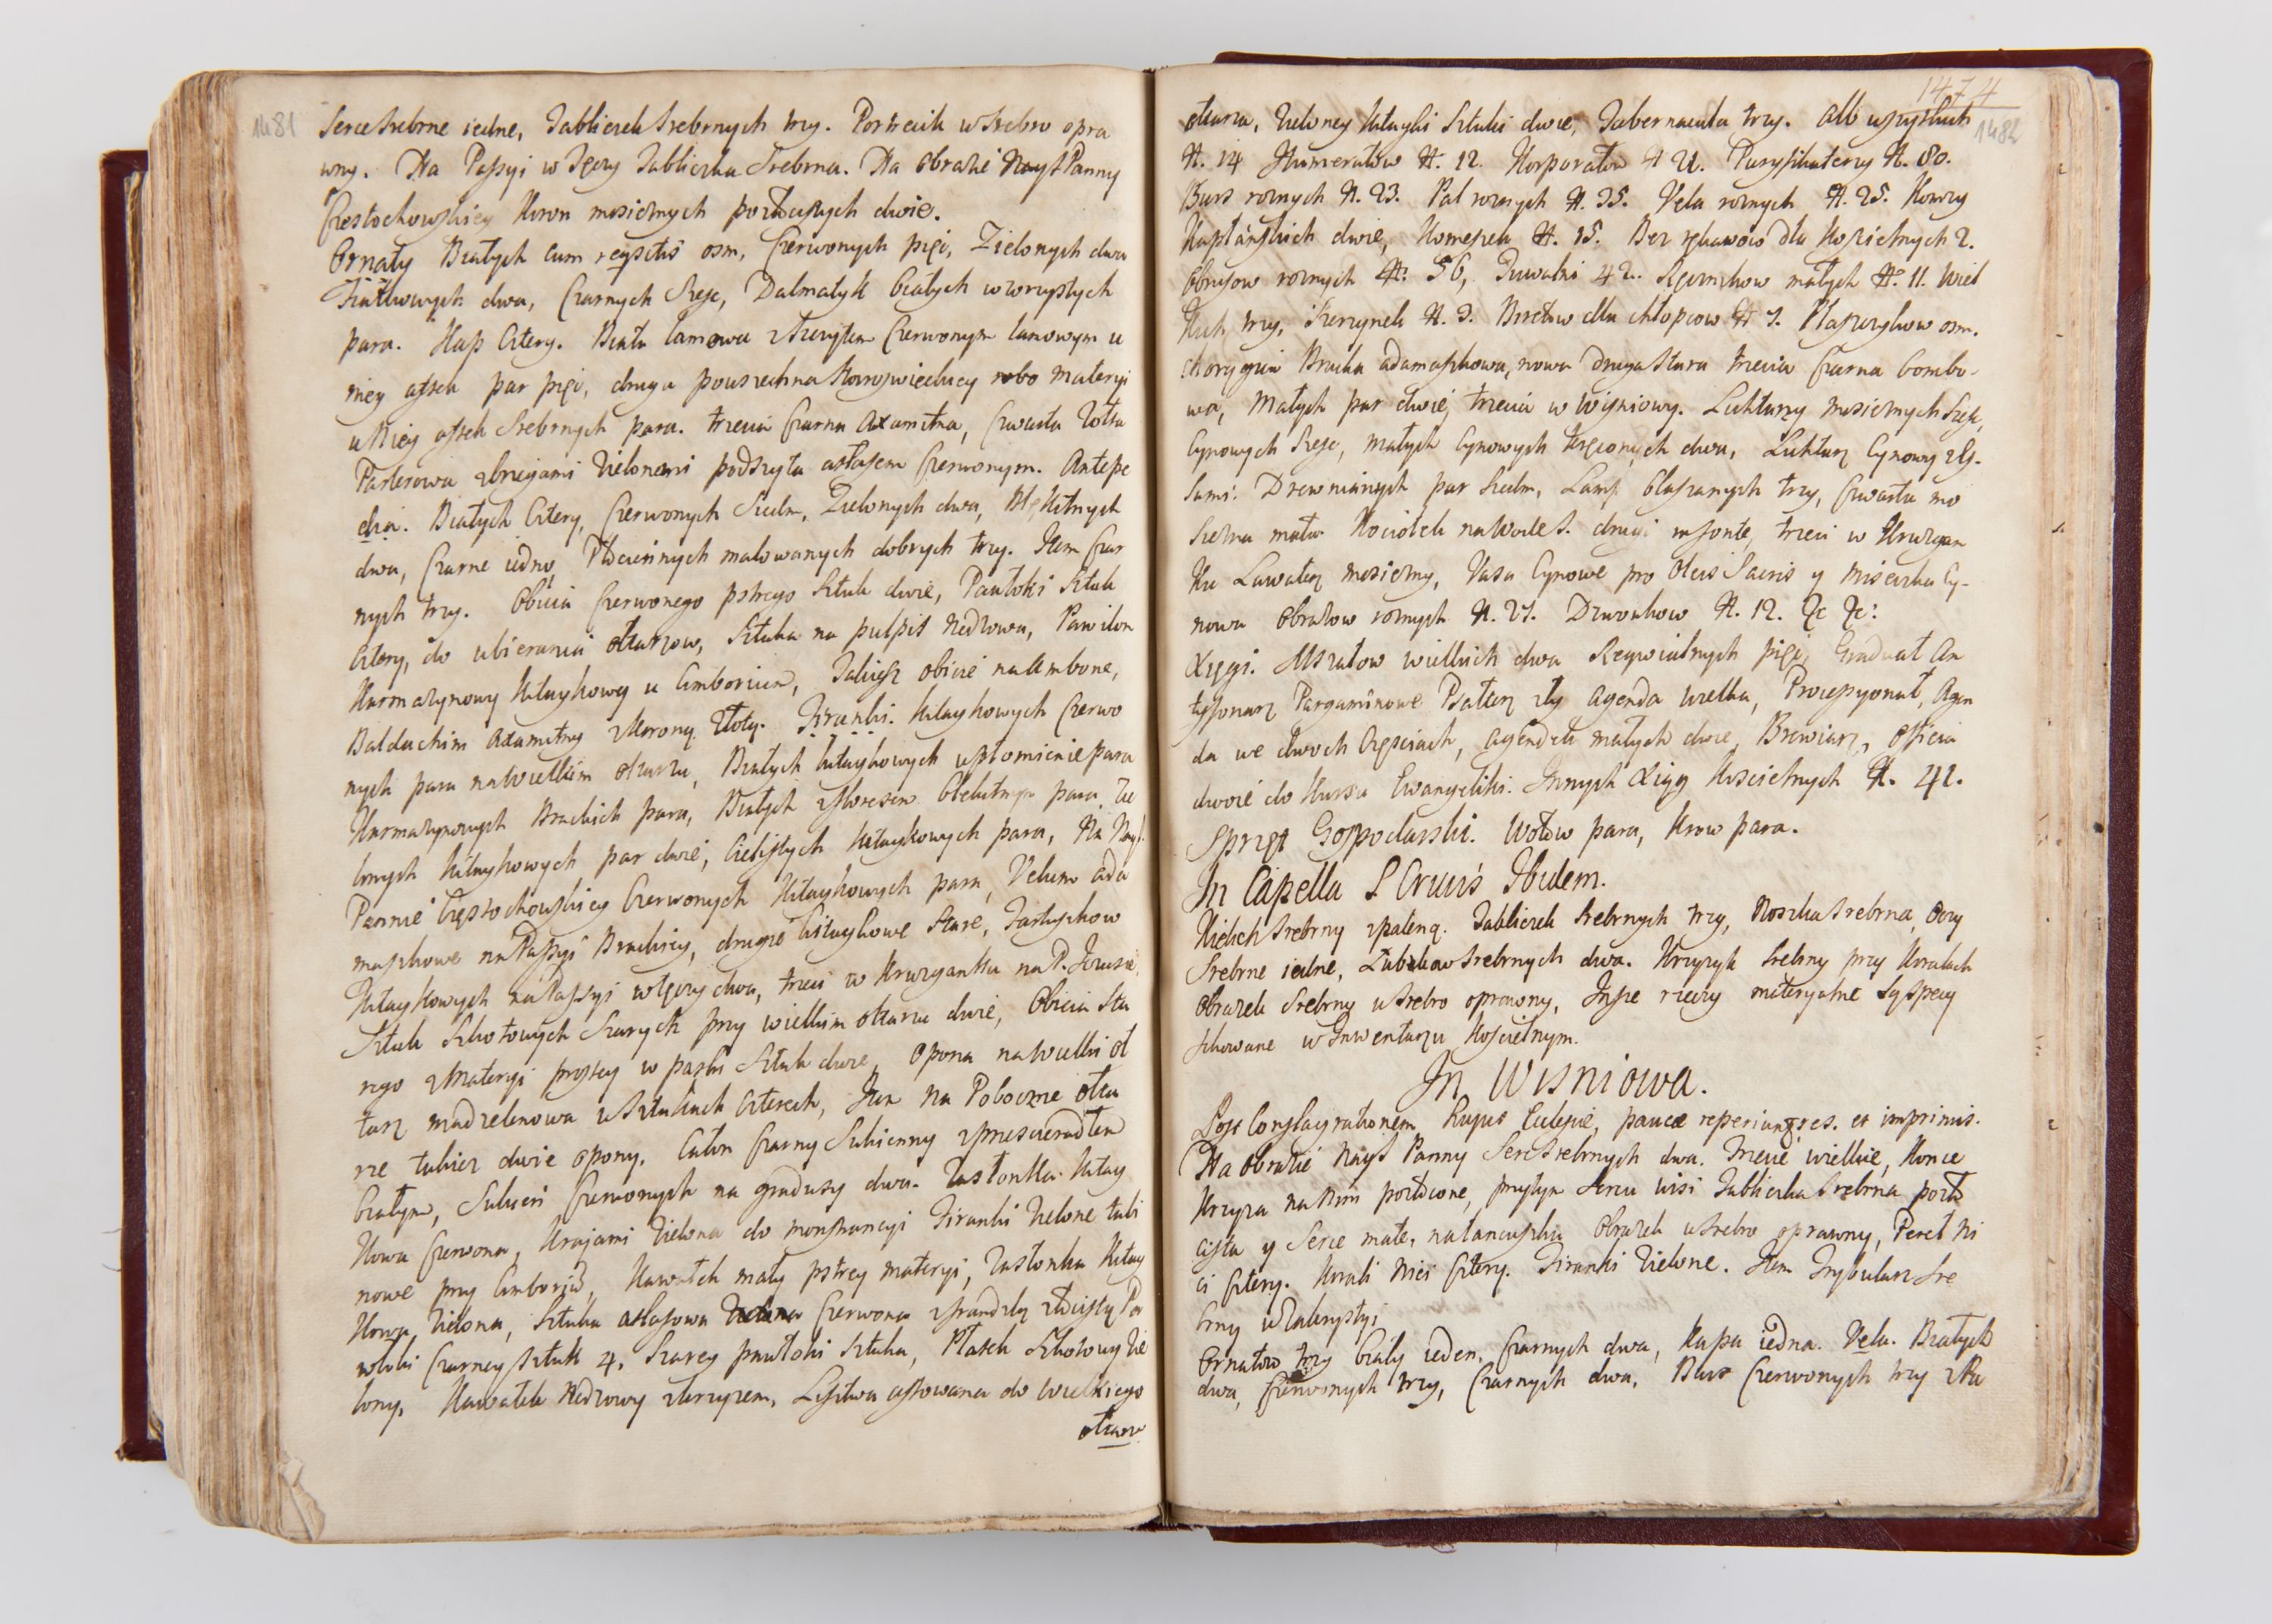 1481
Serce srebrne iedne, Tabliczek srebrnych trzy. Portrecik w srebro opra
wny. Na Passyi w Tęczy Tabliczka Srebrna. Na Obrazie Nayś Panny
Częstochowskiey Koron mosiemnych pozłocistych dwie.
Ornaty Białych cum reqsitis osm, Czerwonych pięć, Zielonych dwa
Fiałkowych dwa, Czarnych Sześc, Dalmatyk białych wzorzystych
para. Kap Cztery. Biała lamowa z szczytem Czerwonym lamowym u
niey assek par pięć, druga powszechna Koroy więtszey robo materyi
u Niey assek Srebrnych para. trzecia Czarna Axamitna, Czwarta Zołta
Parterowa z bregami Zielonemi podszyta atłasem Czerwonym. Antepe
dia. Białych Cztery, Czerwonych Siedm, Zielonych dwa, Błękitnych
dwa, Czarne iedno, Płociennych malowanych dobrych trzy. Item Czar
nych trzy. Obicia Czerwonego pstrego Sztuk dwie, Pawłoki Sztuk
Cztery, do ubierania ołtarzow, Sztuka na pulpit Kedzowa, Pawilon
Karmazynowy Kitaykowy u Cimborium, Takiesz obicie na Ambone,
Baldachim Axamitny z Koroną Złotą. Firanki. Kitaykowych Czerwo
nych para na Wielkim ołtarzu, Białych kitaykowych w płomienie para
Karmazynowych Brackich para, Białych z floresem błękitnym para, Zie
lonych kitaykowych par dwie, Cielistych kitaykowych para, Na Nayś
Pannie Częstochowskiey Czerwonych Kitaykowych para, Velum ada
maszkowe na Passyi Brackiey, drugie kitaykowe stare, Fartuchow
Kitaykowych na Passyi w Tęczy dwa, trzeci w Kruzganku na P. Jezusie
Sztuk Szkotowych Szarych przy wielkim ołtarzu dwie, Obicia Sta
rego z Materyi prostey w paski Sztuk dwie, Opona na Wielki oł
tarz madzelonowa w sztukach Czterech, Item na Poboczne ołta
rze takiez dwie opony. Całun Czarny Sukienny z przescieradłem
białym, Sukien Czerwonych na gradusy dwa. Zasłonka kitay
kowa Czerwona, Krajami Zielona do monstrancyi Firanki Zielone tabi
nowe przy Cimborium, Kawałek mały pstrey materyi, Zasłonka Kitay
kowa Zielona, Sztuka atłasowa Czerwona z frandzlą złocistą Pa
włoki Czarney sztuk 4, Szarey pawłoki Sztuka, Płatek Szkotowy Zie
lony, Kawałek Kedzowy z krzyzem, Listwa assowana do Wielkiego
ołtarza
1474
1482
ołtarza, Zieloney Kitayki Sztuki dwie, Tabernacula trzy. Alb wszystkich
N. 14 Humerałow N. 12. Korporałow N 21. Puryfikaterzy N. 80.
Burs roznych N. 23. Pal roznych N. 35. Vela roznych N. 25. Komzy
Kapłańskich dwie, Komezek N. 15. Bez rękawow dla Koscielnych 2.
Obrusow roznych N. 56, Tuwalni 42. Ręcznikow małych N. 11. Wiel
kich trzy, Skrzynek N. 3. Biretow dla chłopcow N 7. Płaszczykow osm.
Chorągwia Bracka adamaszkowa, nowa Druga Stara trzecia Czarna bombo-
wa, Małych par dwie, trzecia w Wiśniowy. Lichtarzy mosiemnych Sześć,
Cynowych Sześc, małych Cynowych kręconych dwa, Lichtarz Cynowy z Ły-
sami. Drewnianych par Siedm, Lamp blaszanych trzy, Czwarta mo
sięzna mała Kociołek na Wodę S. drugi w fonte, trzeci w Kruzgan
ku Lawatarz mosiemny, Vasa Cynowe pro Oleis Sacris y miseczka Cy-
nowa Obrazow roznych N. 27. Dzwonkow N. 12. &c &c:
Xięgi. Mszałow wielkich dwa Reqwialnych pięć, Graduał An
tyfonarz Pargaminowe Psałterz zły Agenda Wielka, Processyonał, Agen
da we dwoch Częściach, agendek małych dwie, Brewiarz, Officia
dwoie do Kursu Ewangeliki: Innych Xiąg Koscielnych N. 42.
Sprzęt Gospodarski. Wołow para, Krow para.
In Capella S Crucis Ibidem.
Kielich srebrny z pateną. Tabliczek srebrnych trzy, Noszka srebrna, Oczy
Srebrne iedne, Ząbkow srebrnych dwa. Krzyzyk srebrny przy Koralach
Obrazek srebrny w srebro oprawny, Insze rzeczy materyalne są specy
fikowane w Inwentarzu Koscielnym.
In Wisniowa.
Post Conflagrationem huius Ecclesiæ, paucæ reperiuntur res. et imprimis.
Na obrazie Nayś Panny Serc srebrnych dwa. Trzecie wielkie, Konce
Krzyza na nim pozłocone, przytym sercu wisi Tabliczka Srebrna pozło
cista y Serce małe, na łancuszku Obrazek w srebro oprawny, Pereł Ni
ci Cztery. Korali Nici Cztery. Firanki Zielone. Item Trybularz Sre
brny w Zakrystyi
Ornatow trzy biały ieden, Czarnych dwa, Kapa iedna. Vela. Białych
dwa, Czerwonych trzy, Czarnych dwa, Burs Czerwonych trzy z Pa